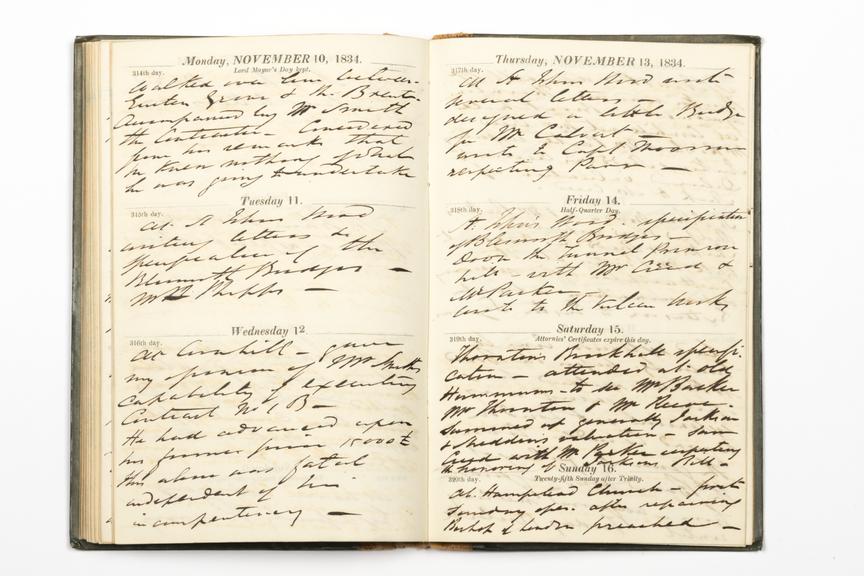 Monday, NOVEMBER 10, 1834.
314th day. Lord Mayor's Day kept.
Walked over line between
Euston Grove & the Brent
Accompanied by Mr Smith
the Contractor - Considered
from his remarks that
he knew nothing of what
he was going to undertake
Tuesday 11.
315th day.
At St Johns Wood
writing letters &
specification of the
Blisworth Bridges -
Mr Phipps -
Wednesday 12.
316th day.
At Cornhill - gave
my opinion of Mr Smiths
capability of executing
Contract No 1 B -
He had advanced upon
his former price 15000£
this alone was fatal
independent of his
incompetency -
Thursday, NOVEMBER 13, 1834.
317th day.
At St Johns Wood wrote
several letters -
designed a little Bridge
for Mr Calvert -
wrote to Capt Moorsom
respecting
Friday 14.
318th day. Half-Quarter Day.
St. John's Wood, specification
of Blisworth Bridges -
Down the Tunnel Primrose
hill - with Mr Creed &
Mr Parker -
wrote to the Vulcan works
Saturday 15.
319th day. Attornies' Certificates expire this day.
Thornton's Brickhall specifi-
cation - attended at old
Hummums - to see Mr Barker
Mr Thornton & Mr Reeve -
generally Jackson
& Sheddens valuation - Saw
Creed with Mr Parker respecting
the honoring of Jacksons Bill -
Sunday 16.
320th day. Twenty-fifth Sunday after Trinity.
At Hampstead Church - first
Sunday open after repairing
Bishop of London preached -